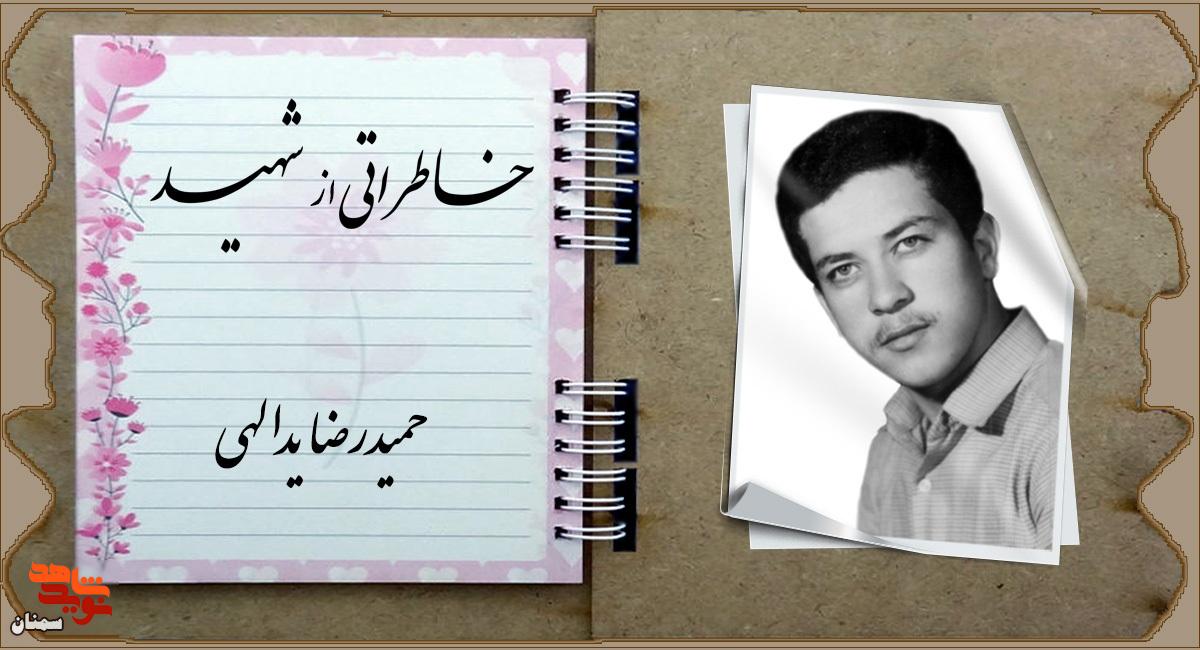 خاطراتی از شهید
حمیدرضا یدالهی
نوید شاهد
سمنان